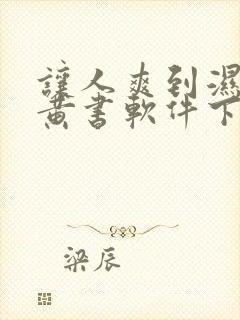 讓人爽到濕
黃書軟件下
梁辰